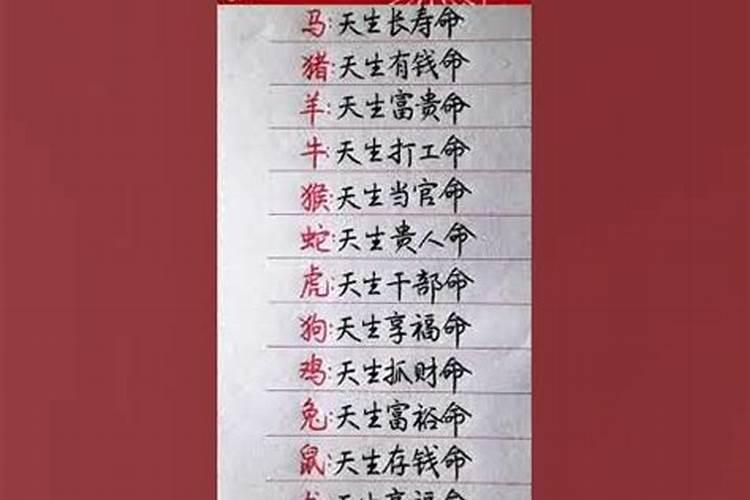 马:天生长寿命
猪:天生有钱命
羊:天生富贵命
牛:天生打工命
猴:天生当官命
蛇:天生贵人命
虎:天生干部命
狗:天生享福命
鸡:天生抓财命
兔:天生富裕命
鼠:天生存钱命